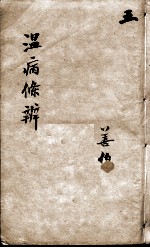 五
温病條辨
善伯